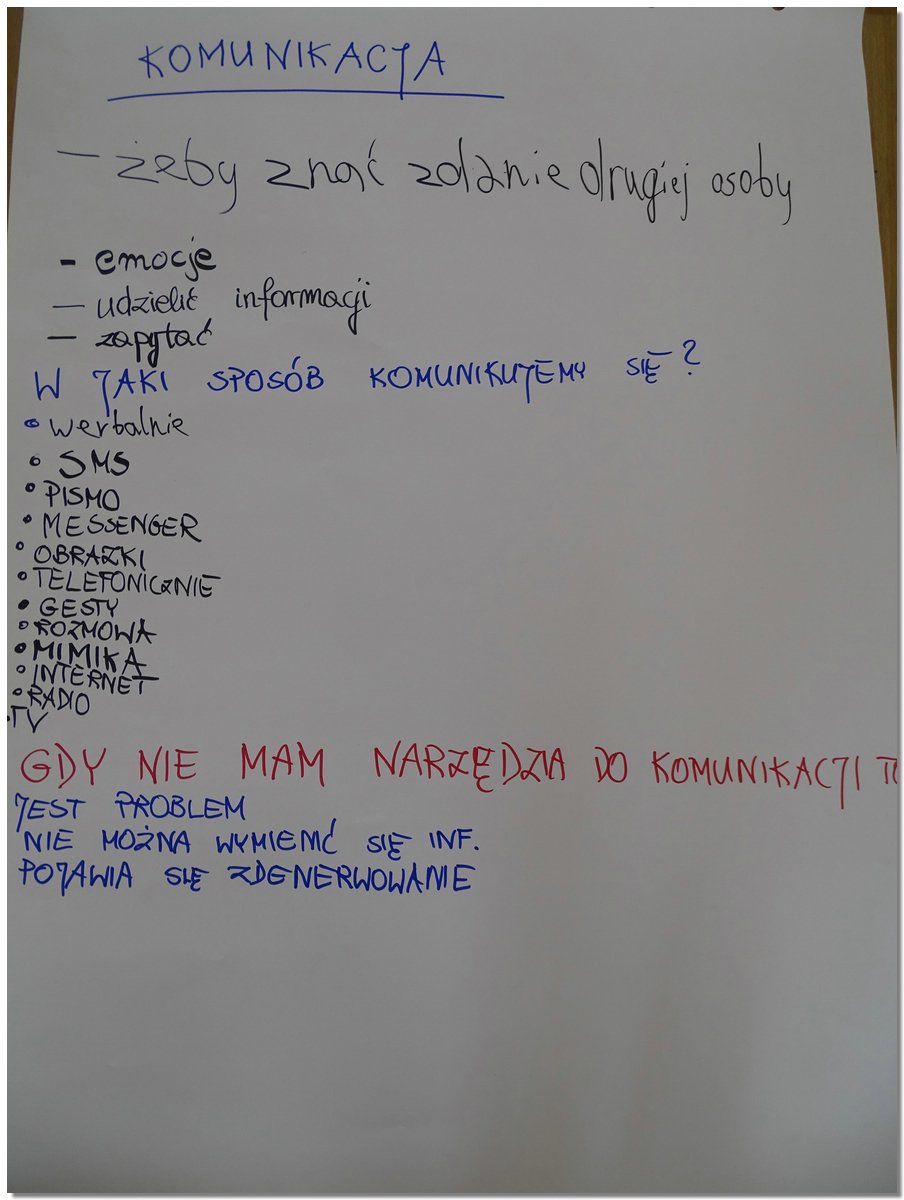 KOMUNIKACJA
— żeby znać zdanie drugiej osoby
- emocje
— udzielić informacji
— zapytać
W JAKI SPOSÓB KOMUNIKUJEMY SIĘ?
• werbalnie
• SMS
• PISMO
• MESSENGER
• OBRAZKI
• TELEFONICZNIE
• GESTY
• ROZMOWA
• MIMIKA
• INTERNET
• RADIO
• TV
GDY NIE MAM NARZĘDZIA DO KOMUNIKACJI TO
JEST PROBLEM
NIE MOŻNA WYMIENIĆ SIĘ INF.
POJAWIA SIĘ ZDENERWOWANIE